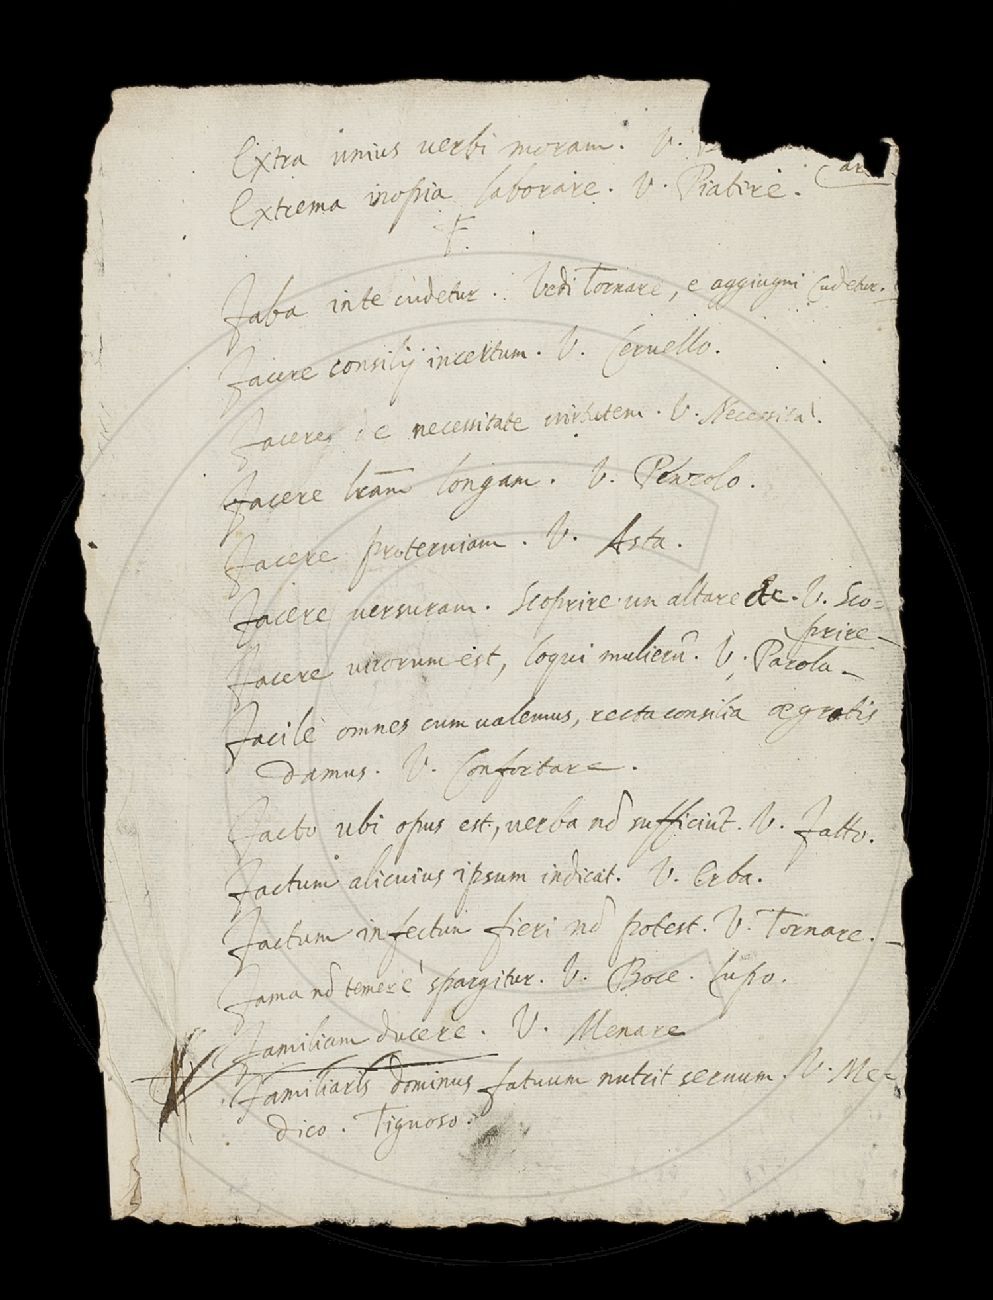 Extra unius verbi moram. V.
Car
Extrema inopia laborare. V. Piatire.
F.
Faba in te cudetur. Vedi Tornare, e aggiugni Cudetur.
Facere consilij incertum. V. Ceruello.
Facere de necessitate virtutem. V. Necessità.
Facere lrām longam. V. Penzolo.
Facere proteruiam. V. Asta.
Facere uersuram. Scoprire un altare &c. V. Sco=
prire
Facere uirorum est, loqui mulierū. V. Parola
Facilè omnes cum ualemus, recta consilia ægrotis
damus. V. Confortare.
Facto ubi opus est, uerba nō sufficiūt. V. Fatto.
Factum alicuius ipsum indicat. V. Erba.
Factum infectum fieri nō potest. V. Tornare.
Fama nō temerè spargitur. V. Boce. Lupo.
Familiam ducere. V. Menare
Familiaris dominus fatuum nutrit seruum. V. Me-
dico. Tignoso.